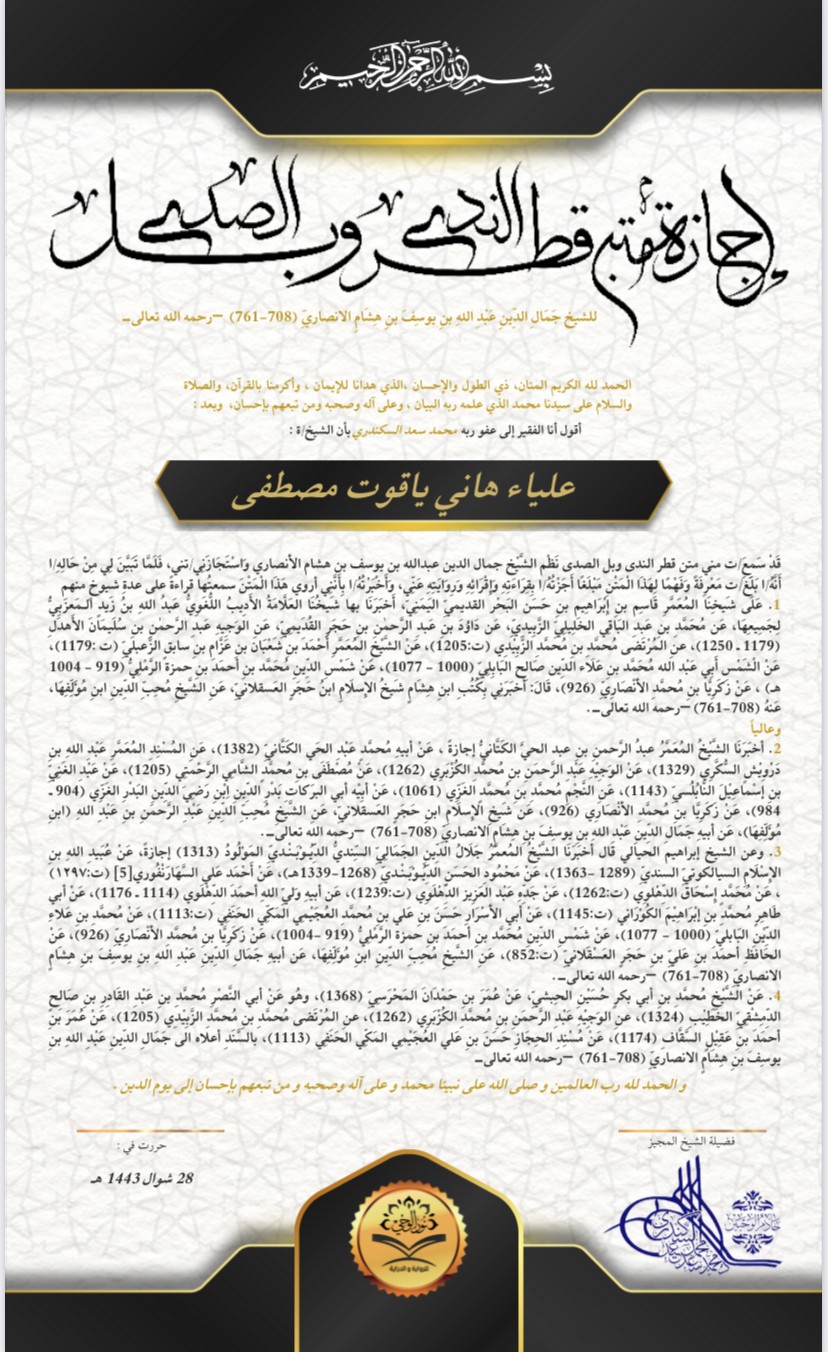 بسم الله الرحمن الرحيم
إجازة متن قطر الندى وبل الصدى
للشيخ جَمَال الدِّينِ عَبْدِ اللهِ بنِ يوسِفَ بنِ هِشَامٍ الانصاريّ (708-761) –رحمه الله تعالى–
الحمد لله الكريم المنان، ذي الطول والإحسان ،الذي هدانا للإيمان ، وأكرمنا بالقرآن، والصلاة
والسلام على سيدنا محمد الذي علمه ربه البيان ، وعلى آله وصحبه ومن تبعهم بإحسان، وبعد :
أقول أنا الفقير إلى عفو ربه محمد سعد السكندري بأن الشيخ/ة :
علياء هاني ياقوت مصطفى
قَدْ سَمِعَ/ت مني متن قطر الندى وبل الصدى نَظْم الشَّيْخ جمال الدين عبدالله بن يوسف بن هشام الأنصاري وَاسْتَجَازَنِي/تني، فَلَمَّا تَبَيَّنَ لِي مِنْ حَالِهِ/ا
أنَّهُ/ا بَلَغَ/ت مَعْرِفَةً وَفَهْمًا لِهَذَا الْمَتْنِ مَبْلَغًا أَجَزْتُهُ/ا بِقِرَاءَتِهِ وَإِقْرَائِهِ وَرِوَايَتِهِ عَنِّي، وَأَخْبَرْتُهُ/ا بِأَنَّنِي أروي هَذَا الْمَتْنَ سمعتُها قراءةً على عدةِ شيوخ منهم
1. عَلَى شَيخِنَا المُعَمَّرِ قَاسِمِ بنِ إبْرَاهِيم بنِ حَسَن البَحْر القديميّ اليَمَنيّ، أخبَرَنَا بها شَيخُنَا العَلَّامَةُ الأديبُ اللُّغَويُّ عَبدُ اللهِ بنُ زَيد المَعزَبيُّ
لِجَمِيعِهَا، عَن مُحَمَّد بنِ عَبدِ البَاقِي الخَلِيليّ الزَّبِيديّ، عَن دَاوُدَ بن عَبدِ الرَّحمنِ بن حَجَرٍ القُدَيميّ، عَنِ الوَجِيهِ عَبدِ الرَّحمنِ بن سُلَيمَانَ الأَهدَل
(1179 ـ 1250)، عَنِ المُرْتَضَى مُحمَّد بن مُحَمَّد الزَّبِيْدِي (ت:1205)، عَنْ الشَّيْخِ المُعَمَّرِ أَحْمَدَ بنِ شَعْبَانَ بن عَزَّامٍ بن سابق الزَّعبليّ (ت :1179)،
عَنْ الشَّمْسِ أَبِي عَبدِ الله مُحَمَّدِ بن عَلَاء الدِّين صَالِحٍ البَابِلِيّ (1000 - 1077)، عَنْ شَمْسِ الدِّينِ مُحَمَّدِ بن أَحمَدَ بن حمزةَ الرَّمْلِيُّ (919 - 1004
هـ) ، عَنْ زَكَرِيَّا بنِ مُحمَّدٍ الأَنْصَارِيِّ (926)، قَالَ: أَخبَرَنِي بِكُتُبِ ابنِ هِشَامٍ شَيخُ الإِسلَامِ ابنُ حَجَرٍ العَسقلانيّ، عَنِ الشَّيخِ مُحِبِّ الدِّينِ ابنِ مُؤَلِّفِهَا،
عَنهُ (708-761) –رحمه الله تعالى–.
وعالياً
2. أَخبَرَنَا الشَّيْخُ المُعَمَّرُ عبدُ الرَّحمنِ بن عبدِ الحيِّ الكَتَّانِيُّ إجازةً ، عَنْ أبيهِ مُحمَّد عَبْدِ الحَيِ الكَتَّانِيِّ (1382)، عَنِ المُسْنِدِ المُعَمَّرِ عَبْدِ اللهِ بنِ
دَرْوِيْش السُّكَّرِي (1329)، عَنْ الوَجِيْهِ عَبْدِ الرَّحمَنِ بن مُحَمَّدٍ الكُزْبَرِيِّ (1262)، عَنْ مُصْطَفَى بن مُحمَّد الشامِي الرَّحْمَتِي (1205)، عَنْ عَبْدِ الغَنِيّ
بن إسْمَاعِيْلَ النَّابُلُسِيّ (1143)، عَنِ النَّجْمِ مُحَمَّد بن مُحَمَّدٍ الغَزِي (1061)، عَنْ أَبِيْهِ أَبِي البَرَكَاتِ بَدْرِ الدِّيْنِ ابْنِ رَضِيِّ الدِّينِ البَدْرِ الغَزِي (904 ـ
984)، عَنْ زَكَرِيَّا بن مُحمَّدٍ الأَنْصَارِي (926)، عَنْ شَيخِ الإِسلَامِ ابن حَجَرٍ العَسقلانيّ، عَنِ الشَّيخِ مُحِبِّ الدِّينِ عَبْدِ الرَّحمَنِ بن عَبْدِ اللهِ (ابنِ
مُؤَلِّفِهَا)، عَنْ أبيهِ جَمَالِ الدِّينِ عَبْدِ اللهِ بنِ يوسِفَ بنِ هِشَامٍ الانصاريّ (708-761) –رحمه الله تعالى–.
3. وعن الشيخ إبراهيم الحيالي قال أَخبَرَنَا الشَّيْخُ المُعمَّرُ جَلَالُ الدِّينِ الجَمَالِيّ السِّنْدِيُّ الدِّيوْبَنْدِيّ المَوْلُودُ (1313) إجازةً، عَنْ عُبَيدِ اللهِ بنِ
الإِسْلَامِ السيالكوتيّ السنديّ (1289 -1363)، عَنْ مَحْمُودٍ الحَسَن الدِّيوْبَنْديّ (1268-1339هـ)، عَنْ أَحْمَدِ عَلِي السَّهَارَنْفُوري[5] (ت:١٢٩٧)
، عَنْ مُحَمَّد إِسْحَاقَ الدِّهْلَوِي (ت:1262)، عَنْ جَدِّهِ عَبْدِ العَزِيْزِ الدِّهْلَوِي (ت:1239)، عَن أبيهِ وَلِيِّ الله أحمَدَ الدِّهْلَوِي (1114 ـ 1176)، عَنْ أَبِي
طَاهِرٍ مُحمَّدِ بن إِبْرَاهِيمَ الكُوْرَانِي (ت:1145)، عَنْ أَبِي الأَسْرَارِ حَسَنَ بن عَلي بن مُحمَّد العُجَيْمِي المَكِّي الحَنَفِي (ت:1113)، عَنْ مُحمَّد بن عَلاءِ
الدِّين البَابِلِيّ (1000 - 1077)، عَنْ شَمْسِ الدِّينِ مُحَمَّدِ بن أَحمَدَ بن حمزةَ الرَّمْلِيُّ (919 -1004)، عَنْ زَكَرِيَّا بن مُحمَّدٍ الأَنْصَارِيِّ (926)، عَنْ
الحَافظِ أَحمَدَ بن عَلِيّ بن حَجَرٍ العَسْقَلانِيّ (ت:852)، عَنِ الشَّيْخِ مُحِبِّ الدِّينِ ابنِ مُؤَلِّفِهَا، عَنْ أبيهِ جَمَالِ الدِّينِ عَبْدِ اللهِ بنِ يوسِفَ بنِ هِشَامٍ
الانصاريّ (708-761) –رحمه الله تعالى–.
4. عَنْ الشَّيْخِ مُحمد بن أبي بكرٍ حُسَيْنٍ الحِبشيّ، عَنْ عُمَرَ بن حَمْدَانَ المَحْرَسيّ (1368)، وهُو عَنْ أبي النَّصْرِ مُحمَّدِ بن عَبْدِ القَادِرِ بن صَالحٍ
الدِّمشْقيّ الخَطِيْبِ (1324)، عن الوَجِيْهِ عَبْدِ الرَّحمنِ بن مُحمَّدٍ الكُزْبَرِي (1262)، عن المُرْتَضَى مُحمَّد بن مُحمَّد الزَّبِيْدِي (1205)، عَنْ عُمَرَ بن
أحمَد بن عَقِيْلٍ السَّقَّاف (1174)، عَنْ مُسْنِدِ الحِجَازِ حَسَنْ بن عَلي العُجَيْمي المَكِّي الحَنَفِي (1113)، بالسَّنَدِ أعلاه الى جَمَالِ الدِّينِ عَبْدِ اللهِ بنِ
يوسِفَ بنِ هِشَامٍ الانصاريّ (708-761) –رحمه الله تعالى–
و الحمد لله رب العالمين و صلى الله على نبينا محمد و على آله وصحبه و من تبعهم بإحسان إلى يوم الدين .
فضيلة الشيخ المجيز
حررت في :
28 شوال 1443 هـ
خادم الوحيين
محمد سعد السكندري
نور الوحي
للرواية و الدراية